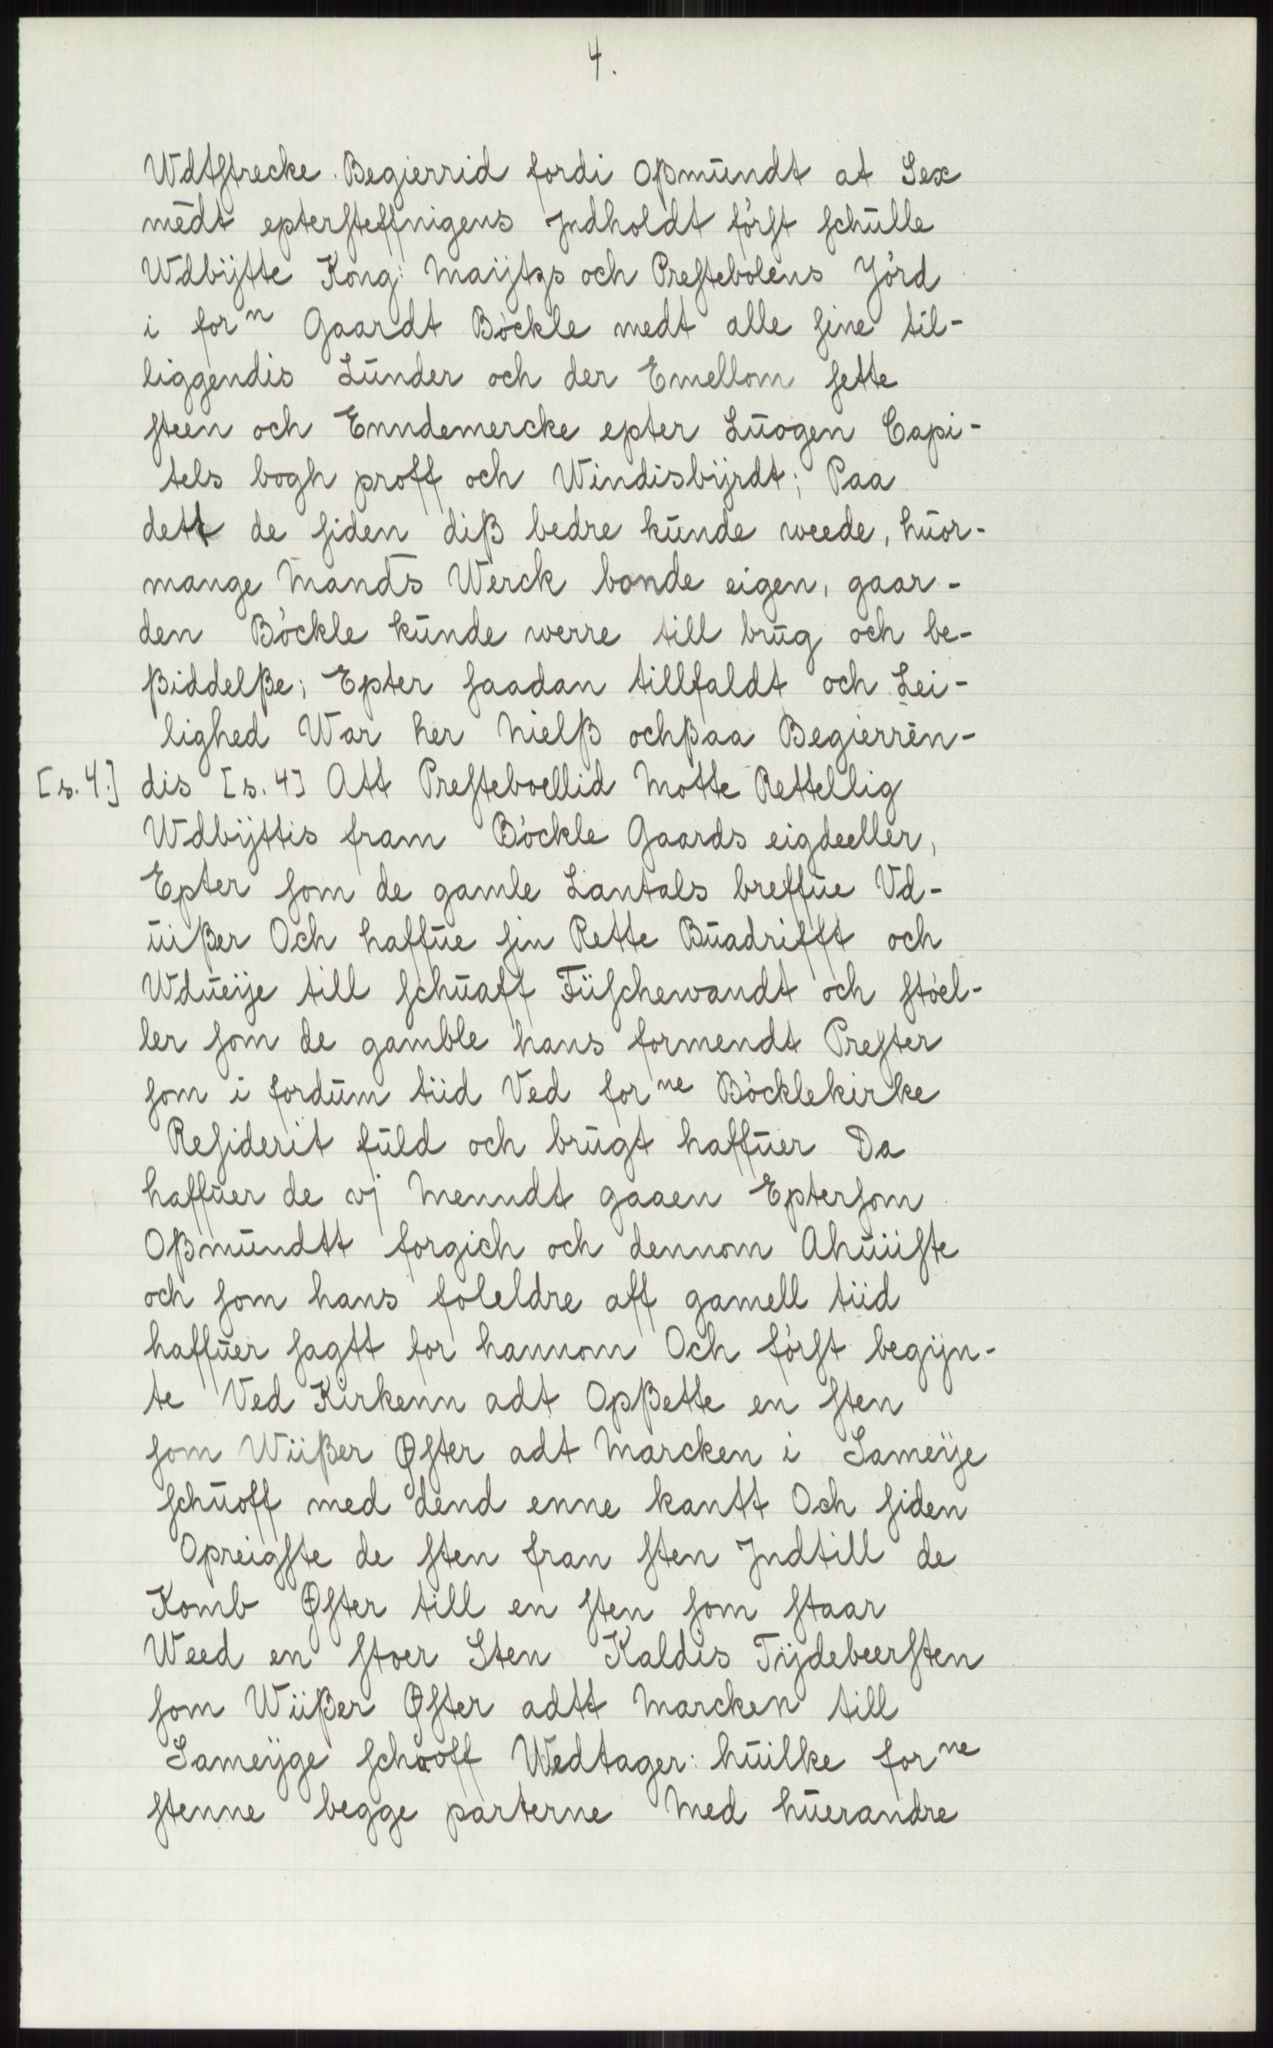 4.
Wdtstrecke. Begierrid fordi Oßmundt at Sex
medt eptersteffnigens Jndholdt först schulle
Wdbijtte Kong: Maijtzs och Prestebolens Jörd
i forn Gaardt Böckle medt alle sine til-
liggendis Lunder och der Emellom sette
steen och Enndemercke epter Luogen Capi-
tels bogh proff och Windisbijrdt; Paa
dett de siden diß bedre kunde weede, huor-
mange Mands Werck bonde eigen, gaar-
den Böckle kunde werre till brug och be-
ßiddelße; Epter saadan tillfaldt och Lei-
lighed War her Nielß ochßaa Begierren-
[s. 4.] dis [s. 4] Att Presteboellid Motte Rettellig
Wdbijttis fram Böckle Gaards eigdeeller,
Epter som de gamle Lantals breffue Vd-
uißer Och haffue sin Rette Buadrifft och
Wdueije till schuaff Fiischewandt och stöel-
ler som de gamble hans formendt Prester
som i fordum tiid Ved forne Böcklekirke
Residerit fuld och brugt haffuer Da
haffuer de vj Menndt gaaen Eptersom
Oßmundtt forgich och dennom Ahuiiste
och som hans foleldre aff gamell tiid
haffuer sagtt for hannom Och först begijn-
te Ved Kirkenn adt Opßette en sten
som Wiißer Øster adt Marcken i Sameije
schuoff med dend enne kantt Och siden
Opreigste de sten fran sten Jndtill de
Komb Øster till en sten som staar
Weed en stoer Sten Kaldis Tijdebeersten
som Wiißer Øster adtt Marcken till
Sameijge schooff Wedtager: huilke forne
stenne begge parterne Med huerandre